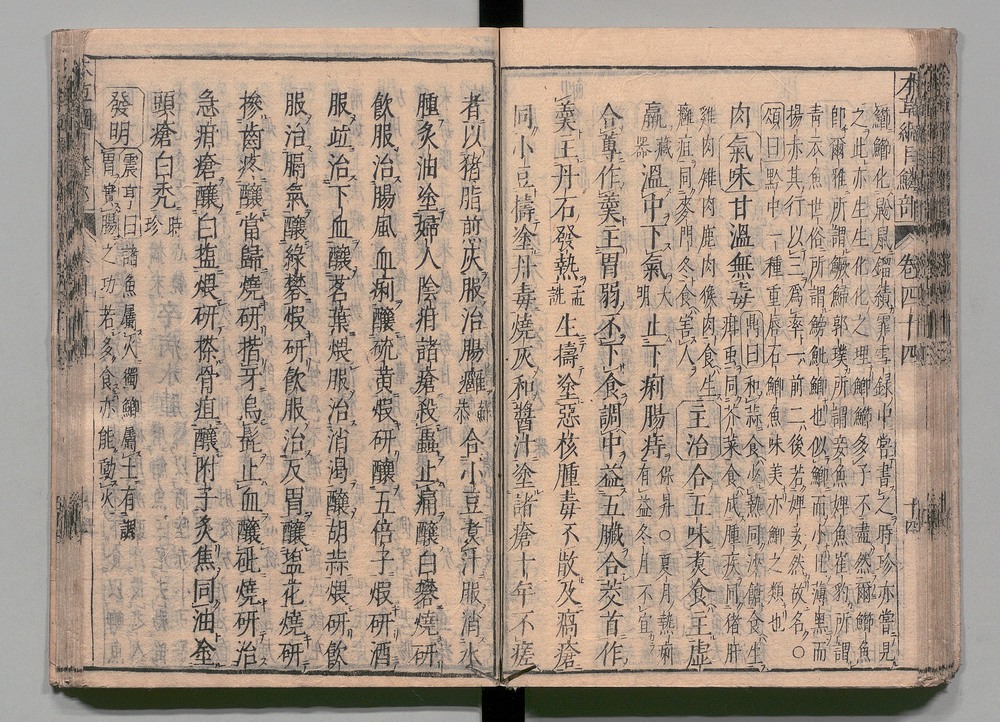 本草綱目鱗部 卷四十四 十四
鱭鰤化鼢鼠鰡績霏雪錄中常書之時珍亦嘗見
之此亦生生化化之理鯽鰤多子不盡然爾鰤魚
郎爾雅所謂鱖鯞郭璞所謂妾魚婢魚崔豹所謂
青衣魚世俗所謂鰟魮鯽也似鯽而小且薄黑而
揚赤其行以三為率一前二後若婢妾然故名○
頌曰黔中一種重唇石鯽魚味美亦鯽之類也
肉氣味甘溫無毒鼎日和蒜食少熱同沙餹食生
疳蟲同芥菜食成腫疾同猪肝
雞肉雉肉鹿肉猴肉食生
癰疽同麥門冬食害人主治合五味煮食主虛
羸藏器溫中下氣大明止下痢腸痔保昇○夏月熱痢
有益冬月不宜
合蓴作羹主胃弱不下食調中益五臟合茭首作
羹主丹石發熱孟詵生擣塗惡核腫毒不散及瘑瘡
同小豆擣塗丹毒燒灰和醬汁塗諸瘡十年不瘥
者以猪脂煎灰服治腸癰蘇恭合小豆煮汁服消水
腫炙油塗婦人陰疳諸瘡殺蟲止痛釀白礬燒研
飲服治腸風血痢釀硫黃煆研釀五倍子煆研酒
服竝治下血釀茗葉煨服治消渴釀胡蒜煨研飲
服治膈氣釀綠礬煆研飲服治反胃釀鹽花燒研
摻齒疼釀當歸燒研揩牙烏髭止血釀砒燒研治
急疳瘡釀白鹽煨研搽骨疽釀附子炙焦同油塗
頭瘡白禿時珍
發明震亨曰諸魚屬火獨鯽屬土有調
胃實腸之功若多食亦能動火